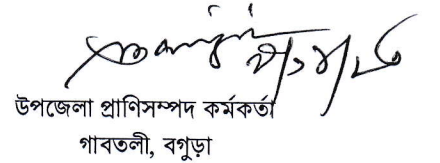 উপজেলা প্রাণিসম্পদ কর্মকর্তা
গাবতলী, বগুড়া